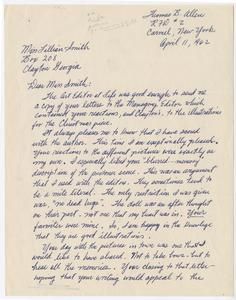 Thomas B. Allen
R.F.D. # 2
Carmel, New York
April 11, 1962
Miss Lillian Smith
Box 203
Clayton Georgia
Dear Miss Smith:
The Art Editor of Life was good enough to send me
a copy of your letter to the Managing Editor which
contained your reactions, and Clayton's, to the illustrations
for the Christmas piece.
It always pleases me to know that I have scored
with the author. This time I am exceptionally pleased.
Your reactions to the different pictures were exactly as
my own. I especially liked your "blurred-memory"
description of the princess scene. This was an argument
that I used with the editor. They sometimes tend to
be a mite literal. The only restriction I was given
was "no dead hogs". The doll was an after thought
on their part, not one that my heart was in. Your
favorites were mine. So, I am happy in the knowledge
that they are good illustrations.
Your day with the pictures in town was one that I
would like to have shared. Not to take bows but to
hear all the memories. Your closing to that letter -
hoping that your writing would appeal to the